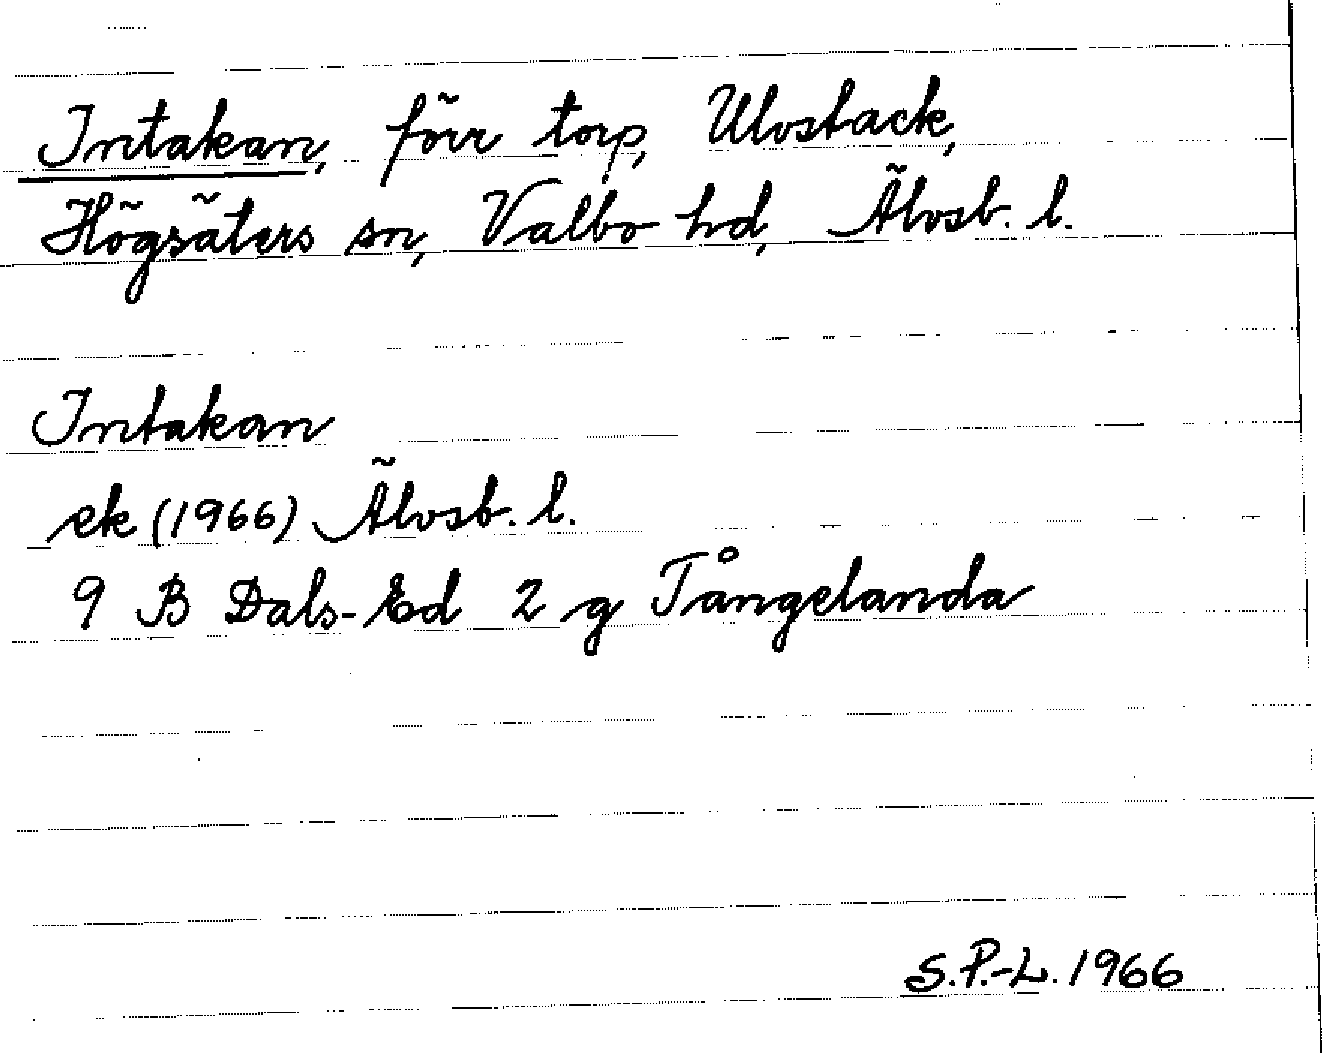 Intakan, förr torp, Ulvsback,
Högsäters sn, Valbo hd, Älvsb. l.
Intakan
ek (1966) Älvsb. l.
9 B Dals-Ed 2 g Tångelanda
S.P.-L. 1966